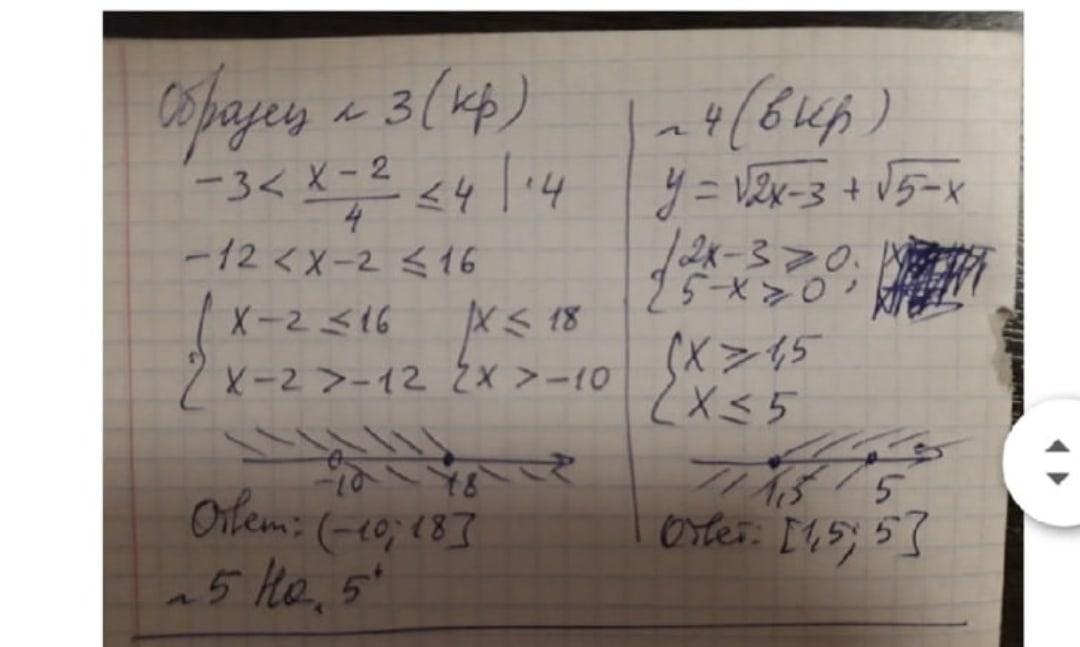 Образец № 3 (кр)
-3 < (x-2)/4 ≤ 4 | ·4
-12 < x-2 ≤ 16
{ x-2 ≤ 16 { x ≤ 18
{ x-2 > -12 { x > -10
-10 18
Ответ: (-10; 18]
№ 5 На "5"
№ 4 (в кр)
y = √2x-3 + √5-x
{ 2x-3 ≥ 0;
{ 5-x ≥ 0;
{ x ≥ 1,5
{ x ≤ 5
1,5 5
Ответ: [1,5; 5]